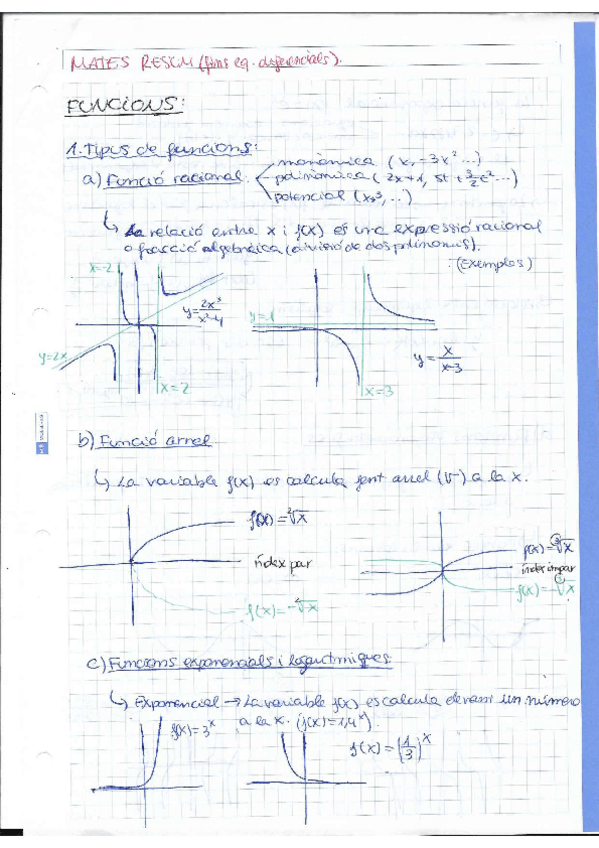 MATES RESUM (fins eq. diferencials).
FUNCIONS:
1. Tipus de funcions:
a) Funció racional.
monòmica (x, -3x² ...)
polinòmica (2x+1, 5t + 3/2 t² ...)
potencial (x, x³, ...)
↳ La relació entre x i f(x) és una expressió racional
o fracció algebràica (divisió de dos polinomis).
(Exemples)
x=-2
y=2x³/x²-4
y=2x
x=2
y=1
y=x/x-3
x=3
b) Funció arrel
↳ La variable f(x) es calcula fent arrel (√) a la x.
f(x)=²√x
índex par
f(x)=-⁴√x
f(x)=³√x
índex impar
f(x)=-√x
c) Funcions exponencials i logarítmiques
↳ Exponencial → La variable f(x) es calcula elevant un número
a la x. (f(x)=1,4ˣ)
f(x)=3ˣ
f(x)=(1/3)ˣ